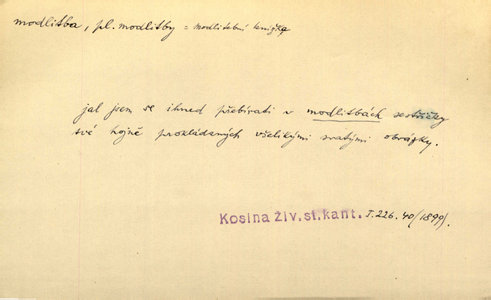 modlitba, pl. modlitby = modlitební knížka
jal jsem se ihned přebírati v modlitbách sestřičky
své hojně prokládaných všelikými svatými obrázky.
Kosina Živ. st. kant. I. 226. 40 (1899).